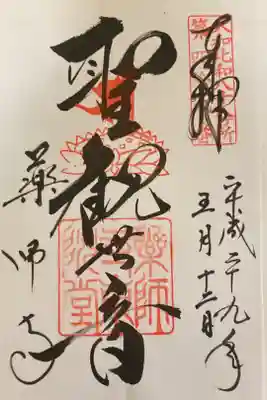 奉拝
平成二十九年
五月十二日
聖観世音
薬師寺